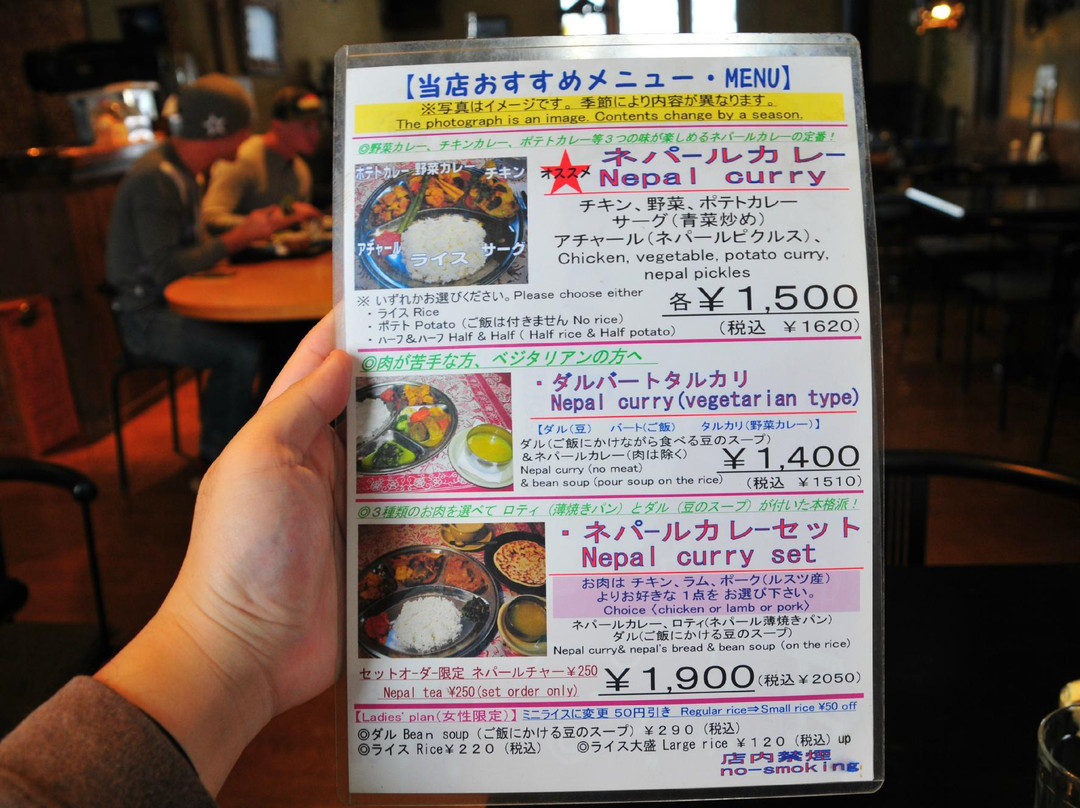 【当店おすすめメニュー・MENU】
※写真はイメージです。季節により内容が異なります。
The photograph is an image. Contents change by a season.
◎野菜カレー、チキンカレー、ポテトカレー等３つの味が楽しめるネパールカレーの定番！
ポテトカレー 野菜カレー チキン
アチャール ライス サーグ
オススメ
ネパールカレー
Nepal curry
チキン、野菜、ポテトカレー
サーグ（青菜炒め）
アチャール（ネパールピクルス）、
Chicken, vegetable, potato curry,
nepal pickles
※ いずれかお選びください。Please choose either
・ライス Rice
・ポテト Potato（ご飯は付きません No rice）
・ハーフ＆ハーフ Half & Half ( Half rice & Half potato)
各￥1,500
（税込 ￥1620）
◎肉が苦手な方、ベジタリアンの方へ
・ダルバートタルカリ
Nepal curry(vegetarian type)
【ダル（豆） バート（ご飯） タルカリ（野菜カレー）】
ダル（ご飯にかけながら食べる豆のスープ）
＆ネパールカレー（肉は除く）
Nepal curry (no meat)
& bean soup (pour soup on the rice)
￥1,400
（税込 ￥1510）
◎３種類のお肉を選べて ロティ（薄焼きパン）とダル（豆のスープ）が付いた本格派！
・ネパールカレーセット
Nepal curry set
お肉は チキン、ラム、ポーク（ルスツ産）
よりお好きな １点を お選び下さい。
Choice〈chicken or lamb or pork〉
ネパールカレー、ロティ（ネパール薄焼きパン）
ダル（ご飯にかける豆のスープ）
Nepal curry& nepal's bread & bean soup（on the rice）
セットオーダー限定 ネパールチャー￥250
Nepal tea ¥250(set order only)
￥1,900（税込￥2050）
【Ladies' plan(女性限定)】ミニライスに変更 50円引き Regular rice⇒Small rice ¥50 off
◎ダル Bean soup（ご飯にかける豆のスープ）￥２９０（税込）
◎ライス Rice￥２２０（税込） ◎ライス大盛 Large rice ￥１２０（税込）up
店内禁煙
no-smoking